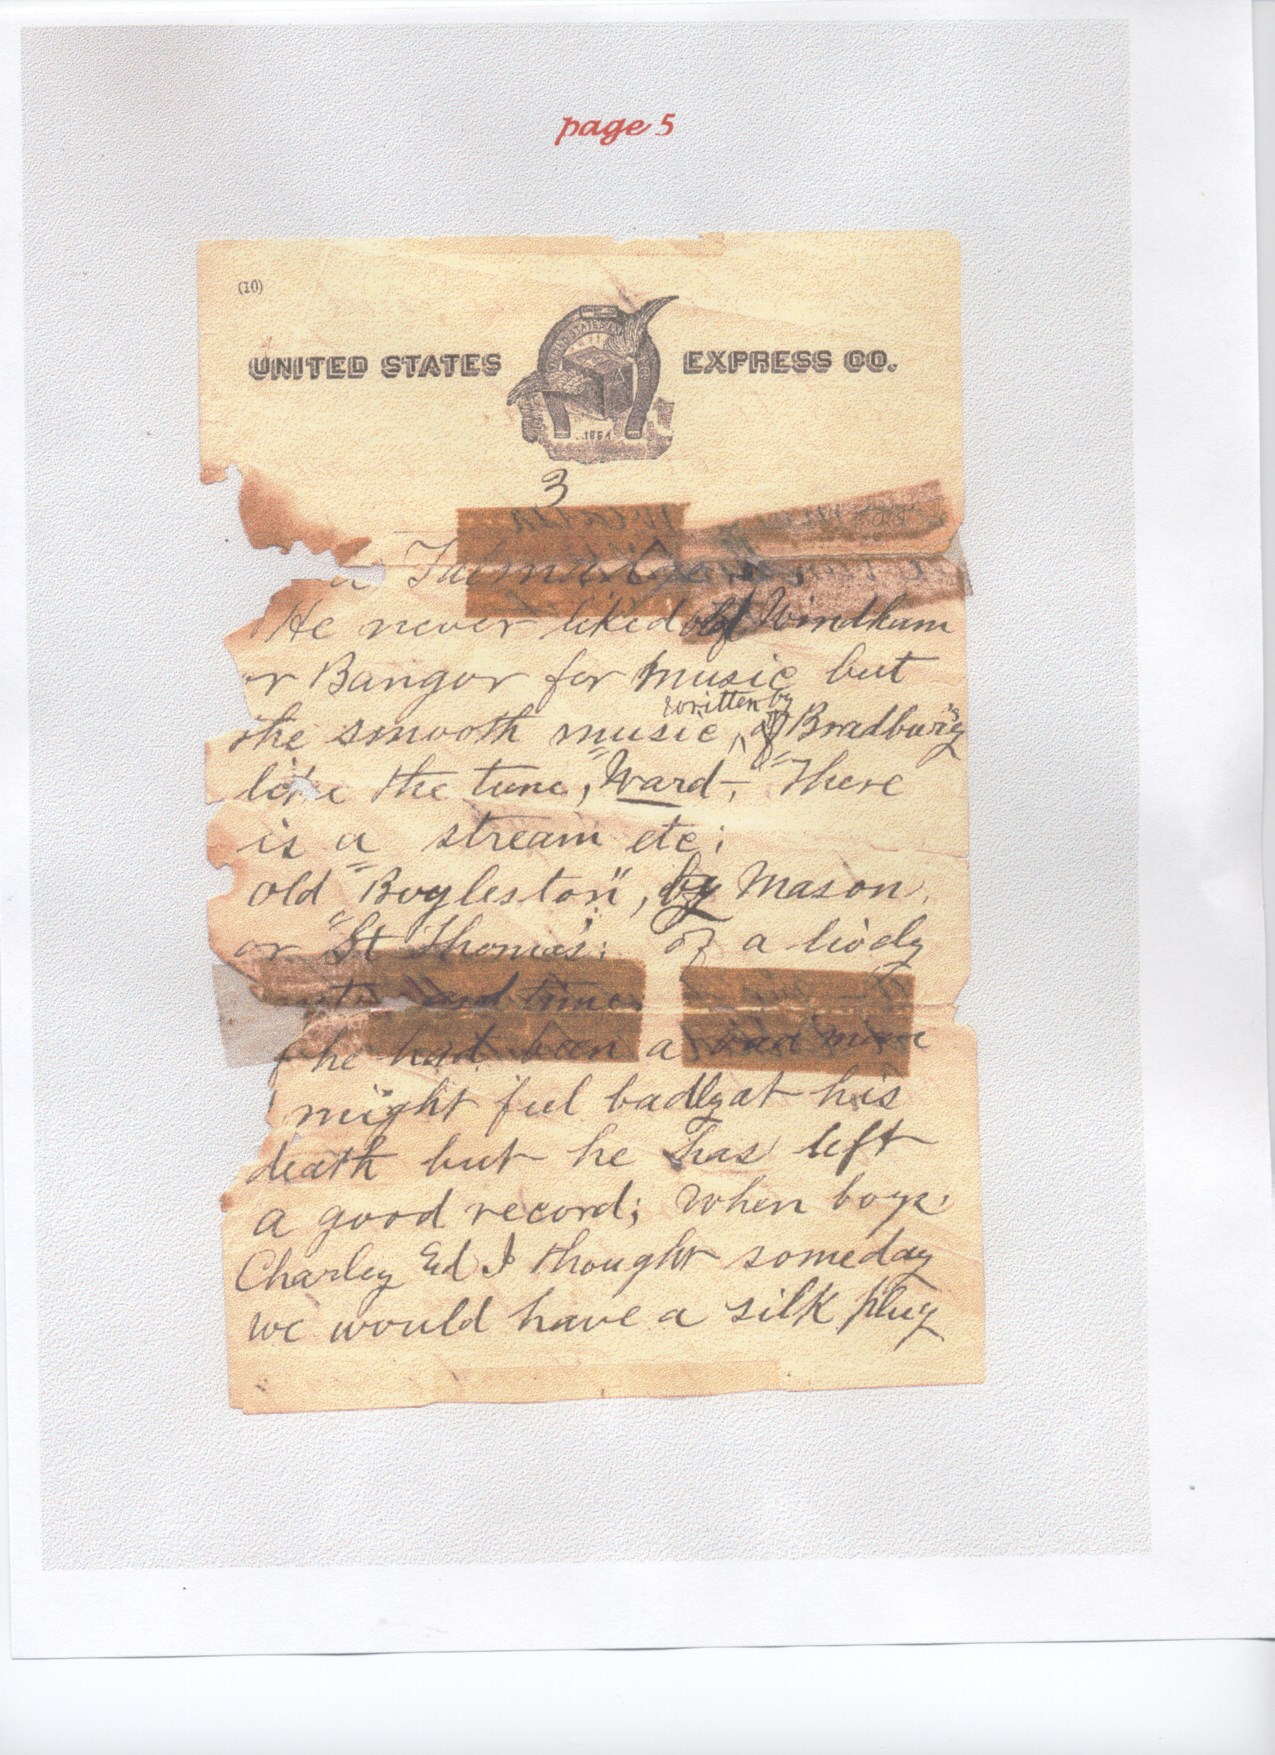 page 5
(10)
UNITED STATES EXPRESS CO.
1854
3
a
He never liked old Windham
or Bangor for music but
the smooth music, written by Bradbury's
like the tune, "Ward", "There
is a stream etc;
old "Boyleston", by Mason,
or "St Thomas"; of a lively
and time
he had been a bad man
might feel badly at his
death but he has left
a good record; When boys.
Charley Ed I thought someday
we would have a silk plug